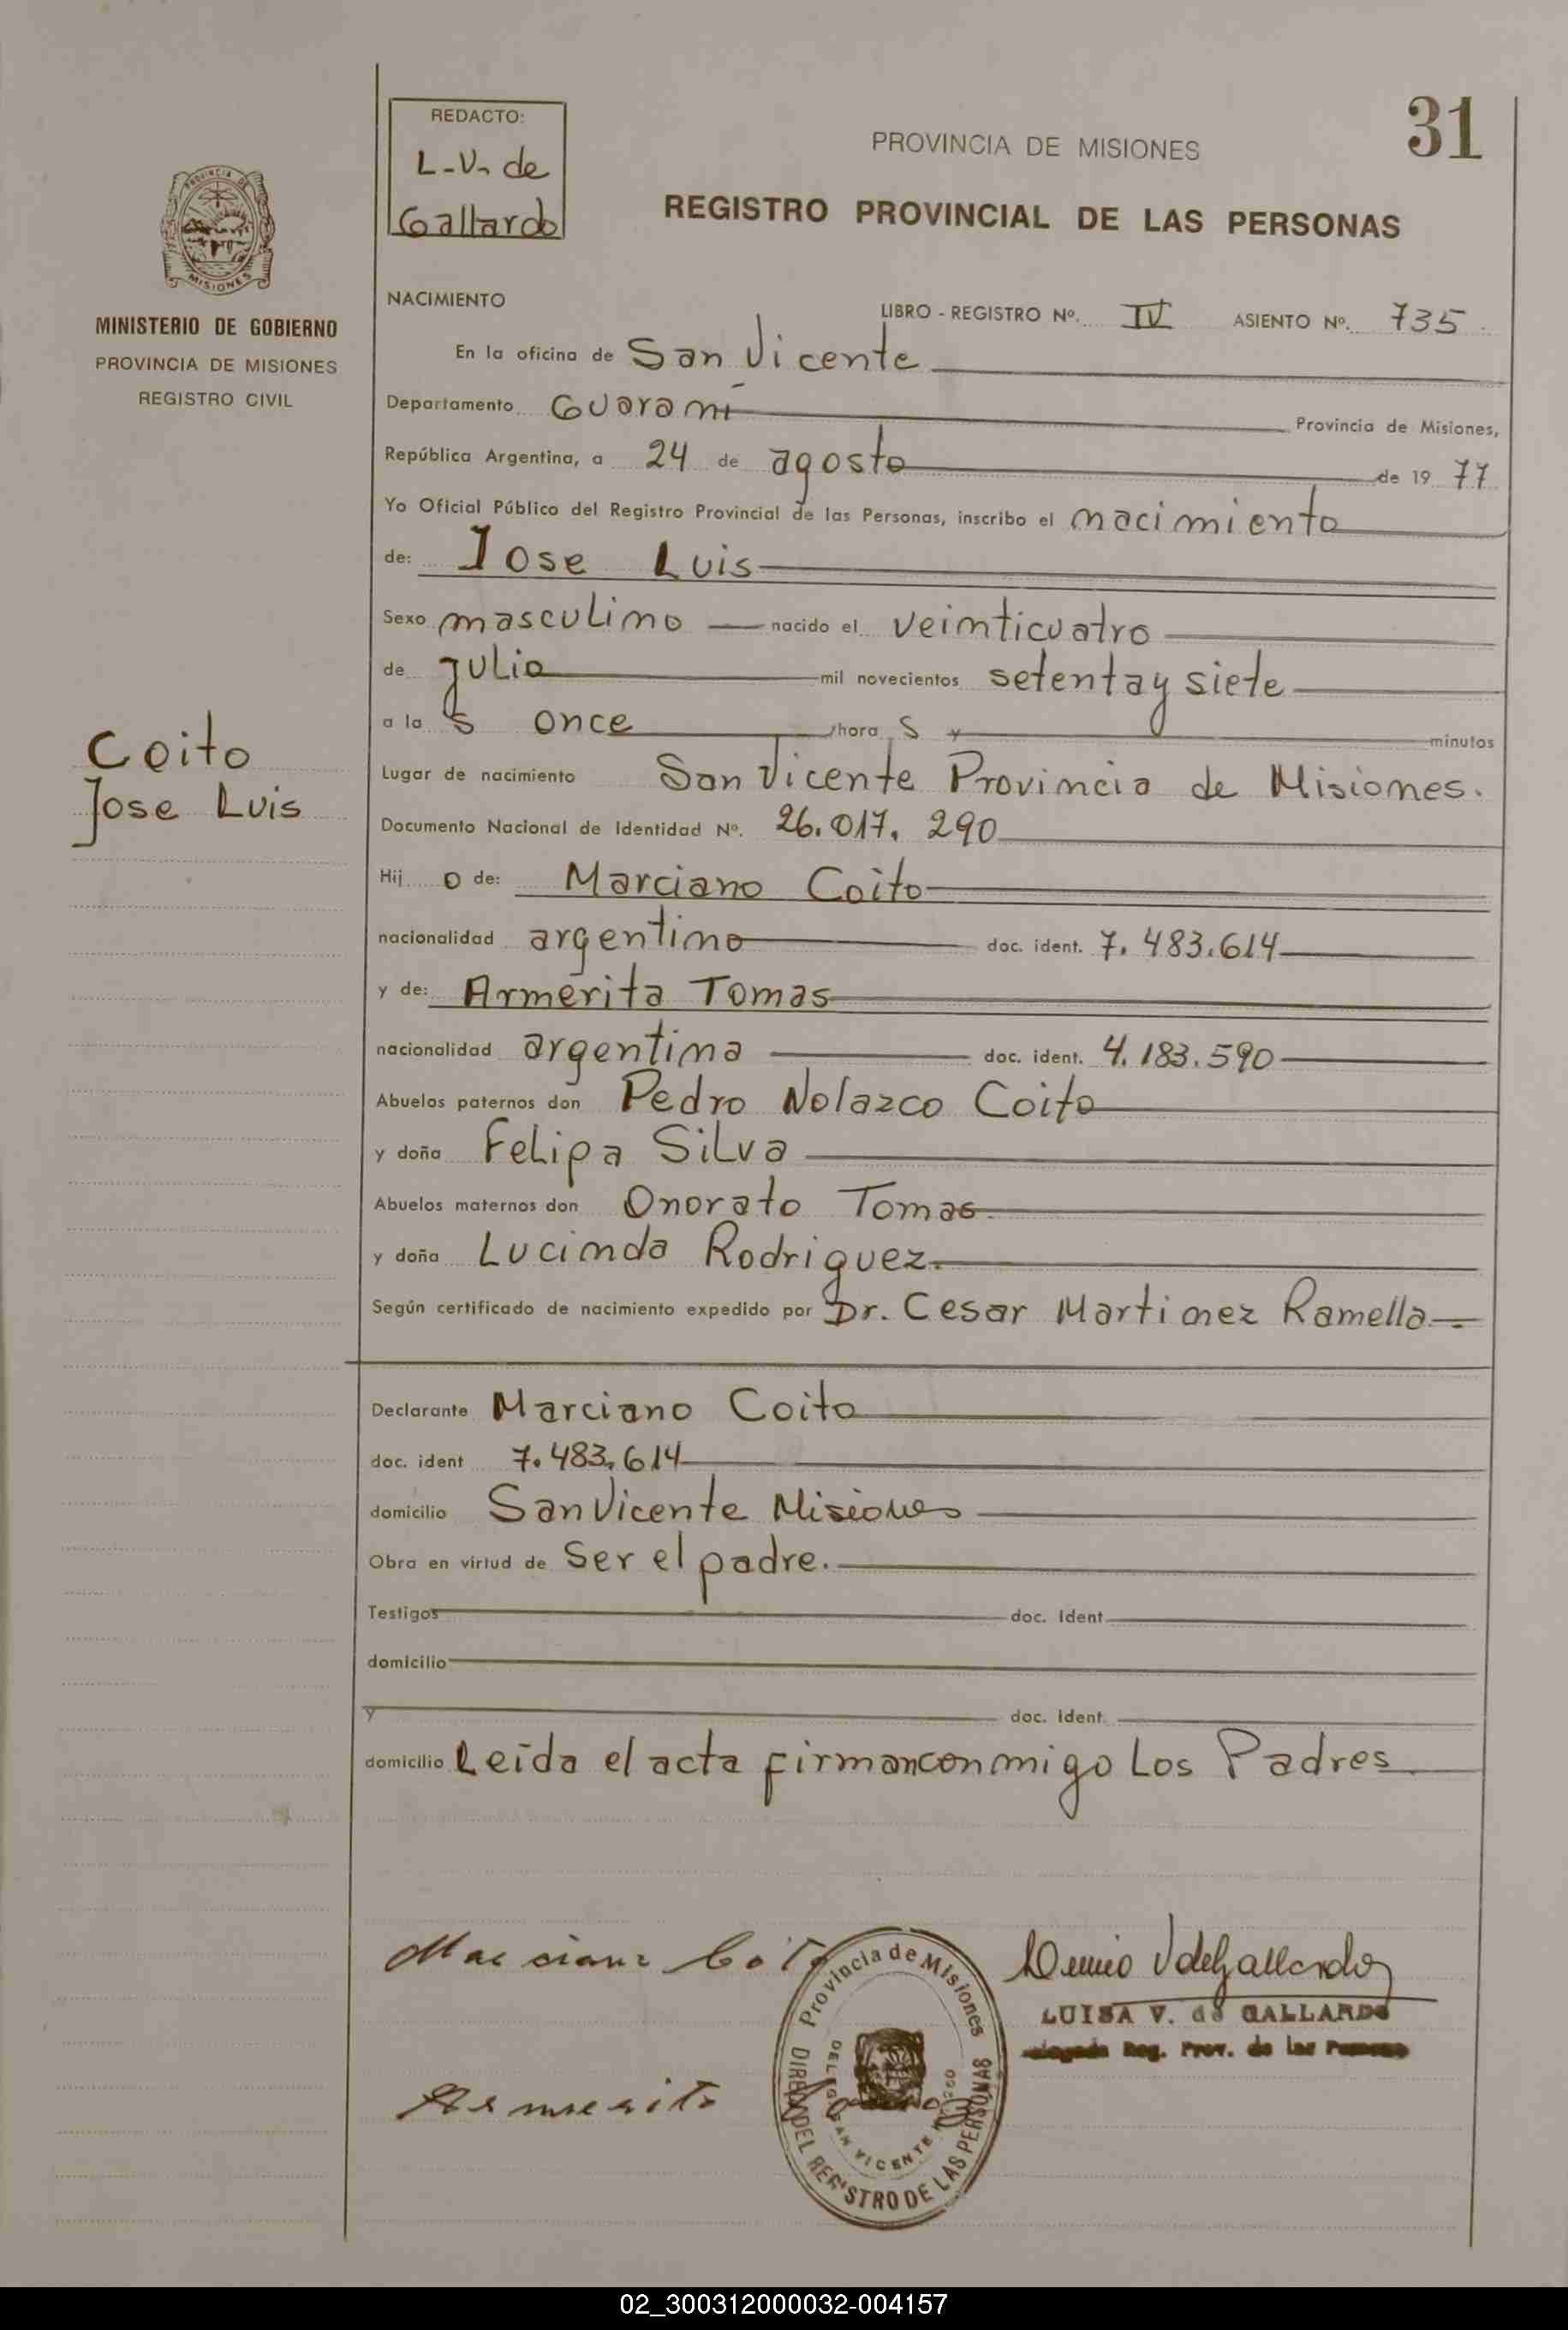 31
REDACTO:
L.V. de
Gallardo
PROVINCIA DE MISIONES
REGISTRO PROVINCIAL DE LAS PERSONAS
PROVINCIA DE
MISIONES
MINISTERIO DE GOBIERNO
PROVINCIA DE MISIONES
REGISTRO CIVIL
Coito
Jose Luis
NACIMIENTO LIBRO - REGISTRO Nº. IV ASIENTO Nº. 735
En la oficina de San Vicente
Departamento Guaraní Provincia de Misiones,
República Argentina, a 24 de agosto de 1977
Yo Oficial Público del Registro Provincial de las Personas, inscribo el nacimiento
de: Jose Luis
Sexo masculino nacido el veinticuatro
de julio mil novecientos setenta y siete
a la s once hora s y minutos
Lugar de nacimiento San Vicente Provincia de Misiones.
Documento Nacional de Identidad Nº. 26.017.290
Hij o de: Marciano Coito
nacionalidad argentino doc. ident. 7.483.614
y de: Armerita Tomas
nacionalidad argentina doc. ident. 4.183.590
Abuelos paternos don Pedro Nolazco Coito
y doña Felipa Silva
Abuelos maternos don Onorato Tomas
y doña Lucinda Rodriguez.
Según certificado de nacimiento expedido por Dr. Cesar Martinez Ramella
Declarante Marciano Coito
doc. ident 7.483.614
domicilio San Vicente Misiones
Obra en virtud de Ser el padre.
Testigos doc. ident.
domicilio
y doc. ident.
domicilio Leida el acta firman conmigo Los Padres
Marciano Coito
Provincia de Misiones
DIREC. DEL REGISTRO DE LAS PERSONAS
SAN VICENTE
V de Gallardo
LUISA V. de GALLARDO
Reg. Prov. de las Personas
Armerita
02_300312000032-004157